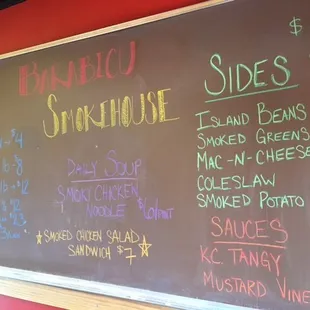 SMOKEHOUSE
$4
8
12
DAILY SOUP
SMOKY CHICKEN
NOODLE
★SMOKED CHICKEN SALAD★
SANDWICH $7
$
SIDES
ISLAND BEANS
SMOKED GREENS
MAC-N-CHEESE
COLESLAW
SMOKED POTATO
SAUCES
KC TANGY
MUSTARD VINE